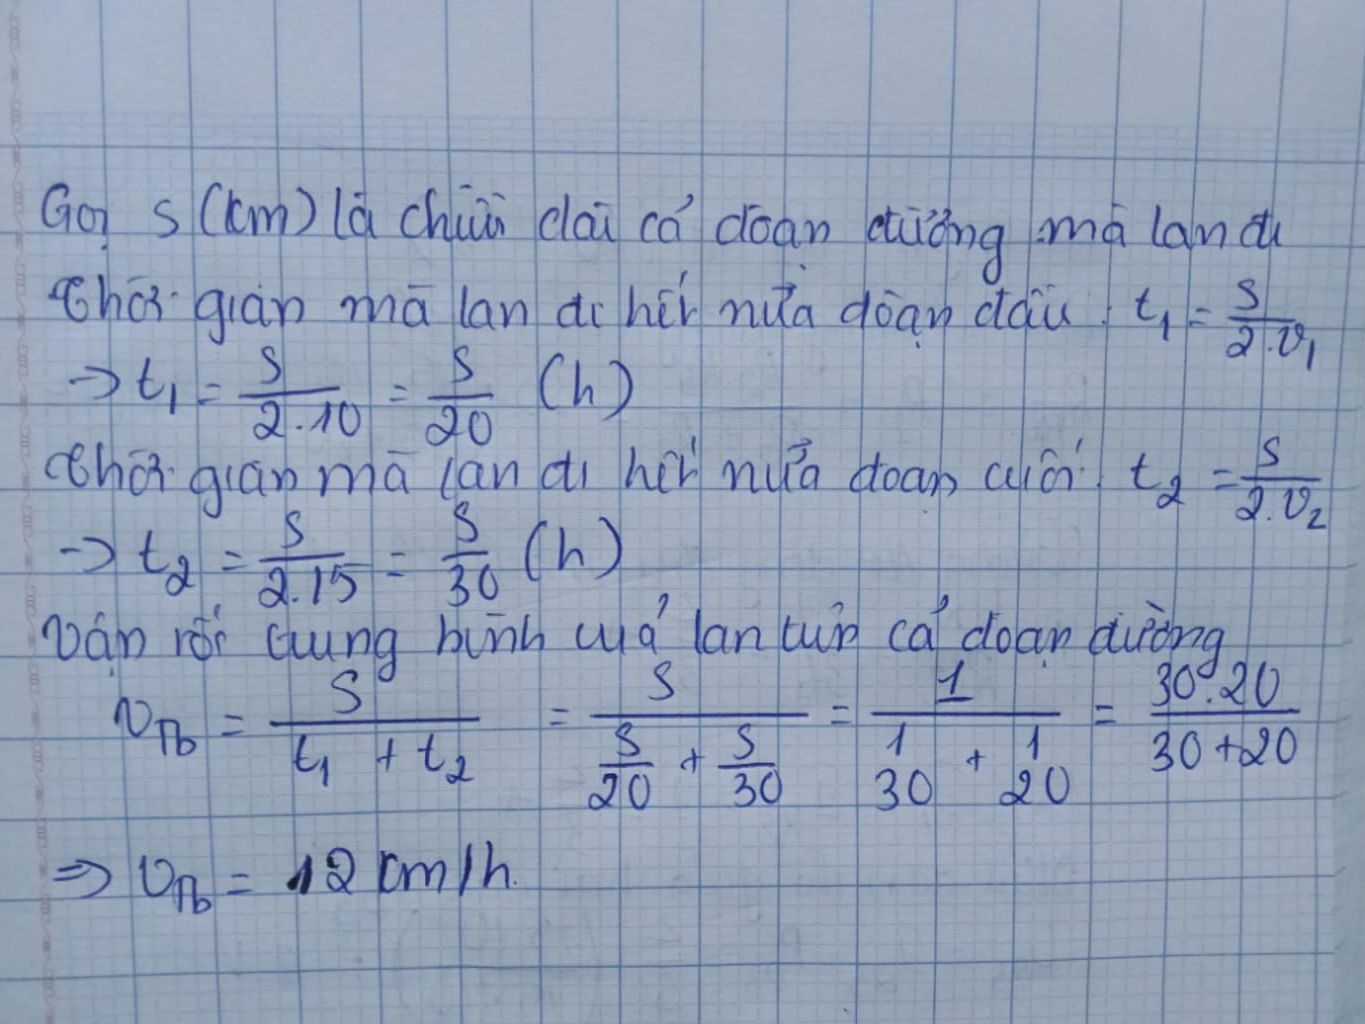 Gọi s (km) là chiều dài cả đoạn đường mà lan đi
Thời gian mà lan đi hết nửa đoạn đầu: t₁ = s/(2.v₁)
→ t₁ = s/(2.10) = s/20 (h)
Thời gian mà lan đi hết nửa đoạn cuối: t₂ = s/(2.v₂)
→ t₂ = s/(2.15) = s/30 (h)
Vận tốc trung bình của lan trên cả đoạn đường
v_Tb = S/(t₁ + t₂) = s/(s/20 + s/30) = 1/(1/30 + 1/20) = (30.20)/(30+20)
⇒ v_Tb = 12 km/h.